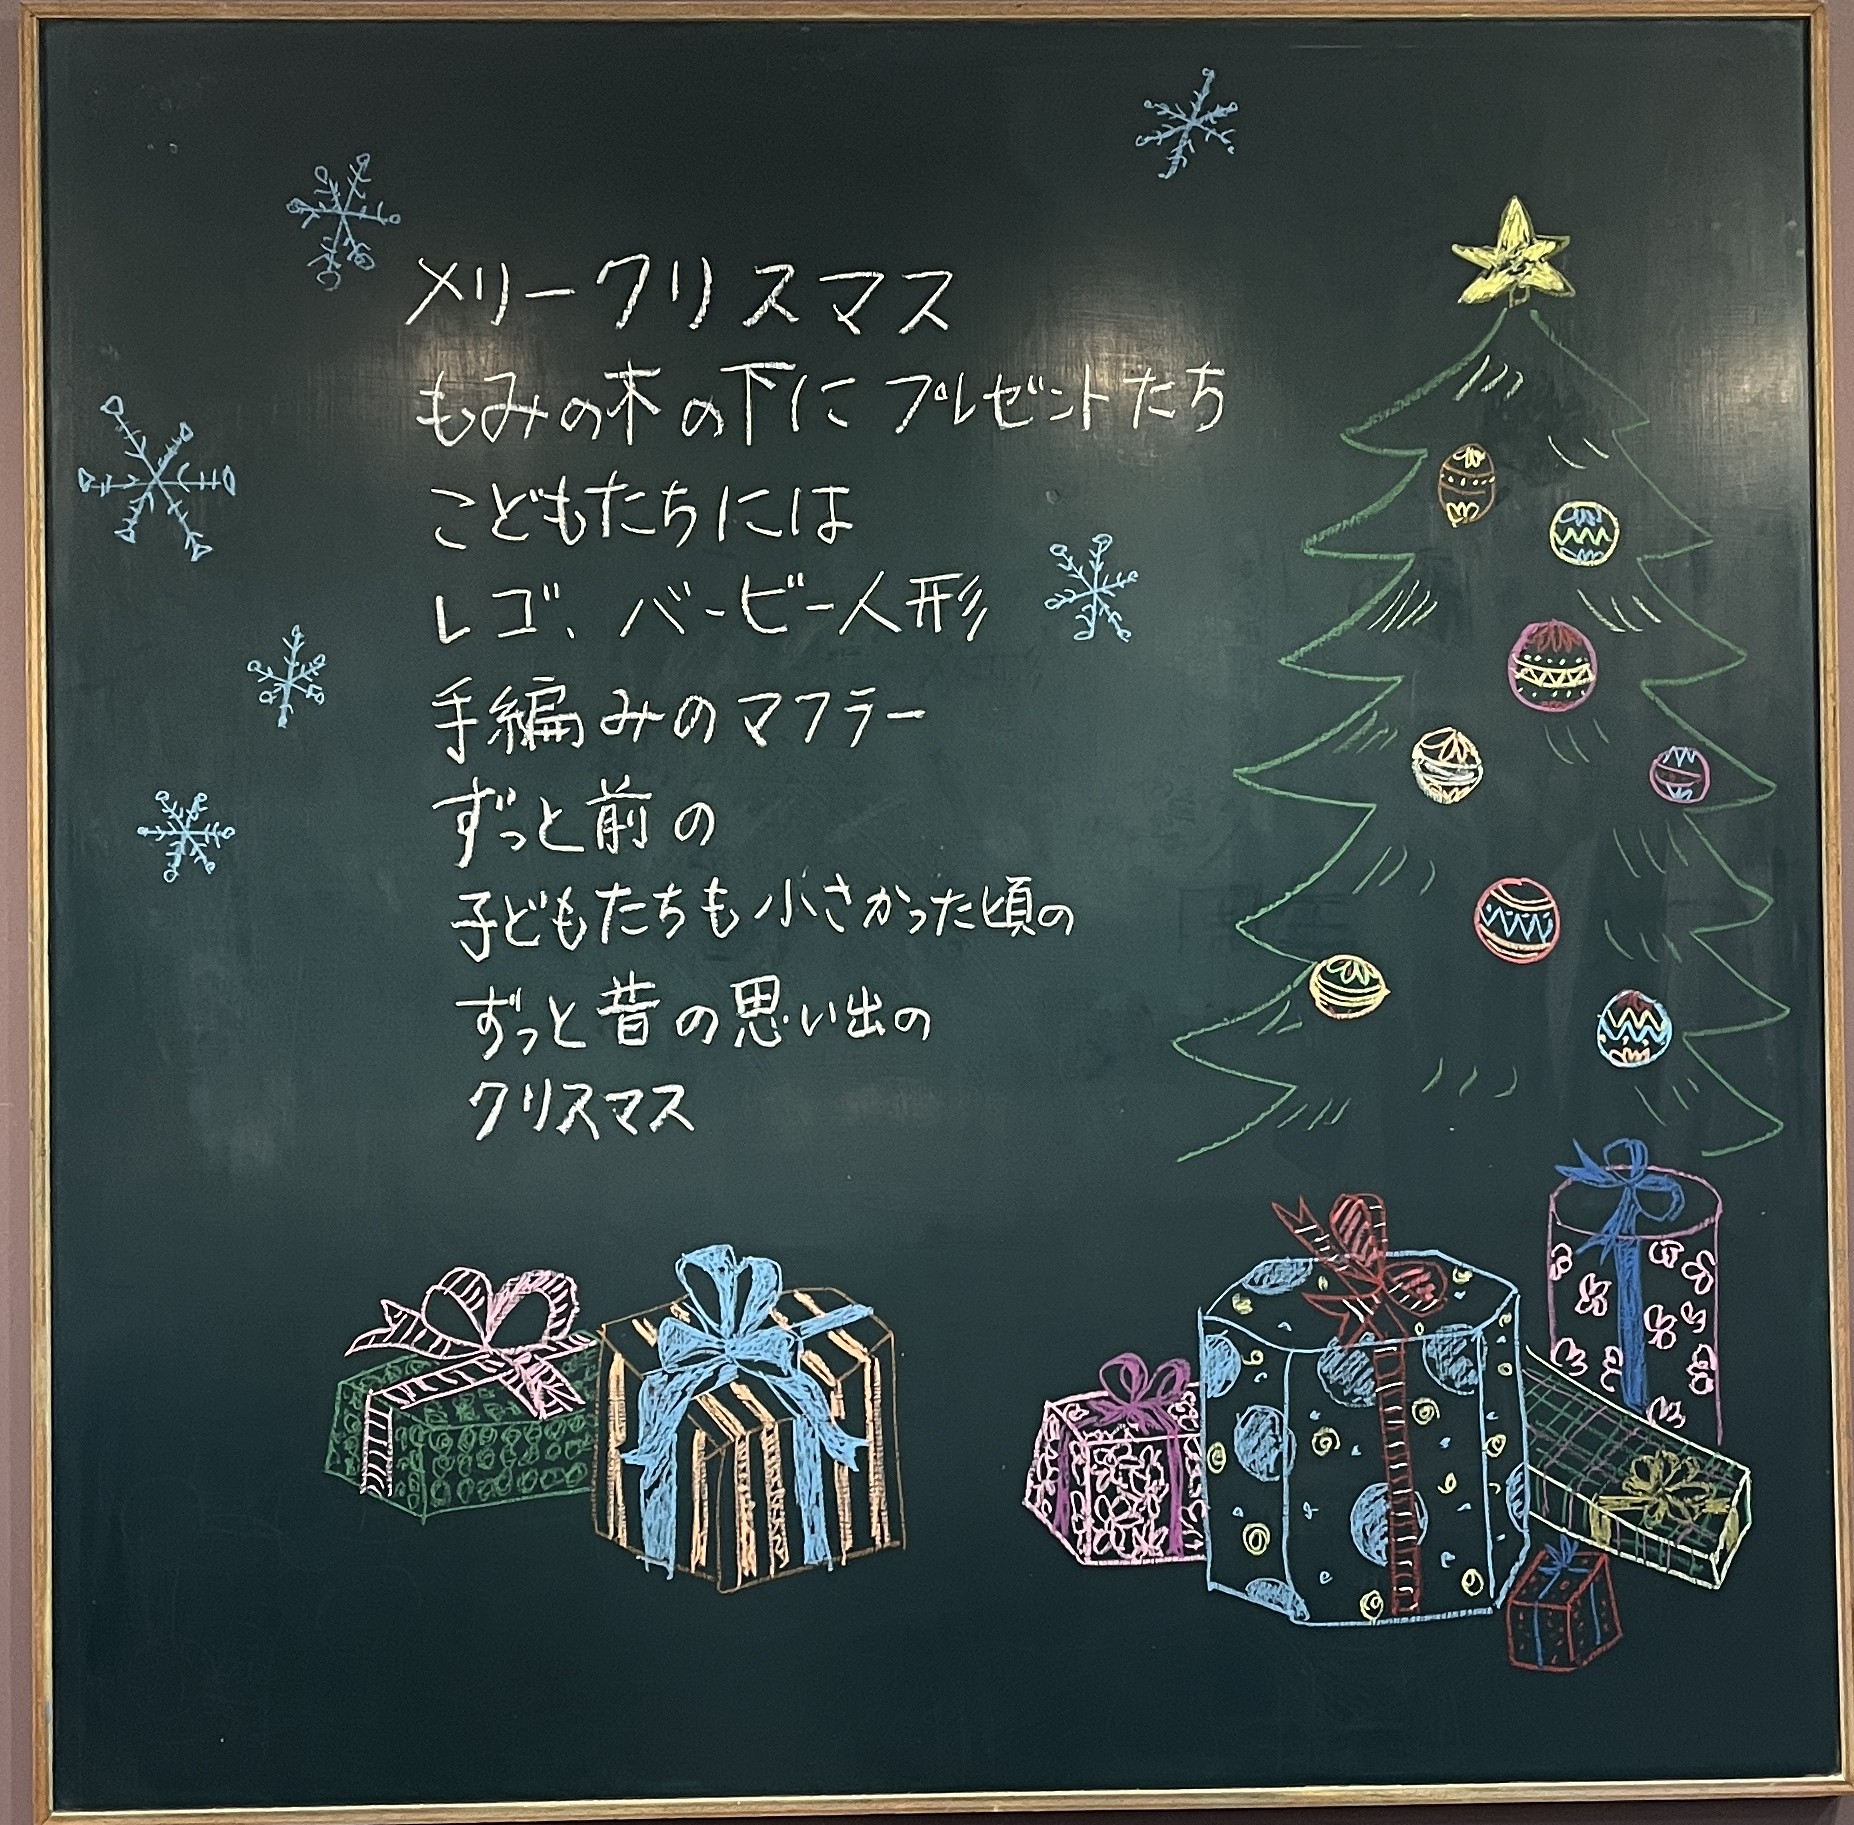 メリークリスマス
もみの木の下にプレゼントたち
こどもたちには
レゴ、バービー人形
手編みのマフラー
ずっと前の
子どもたちも小さかった頃の
ずっと昔の思い出の
クリスマス